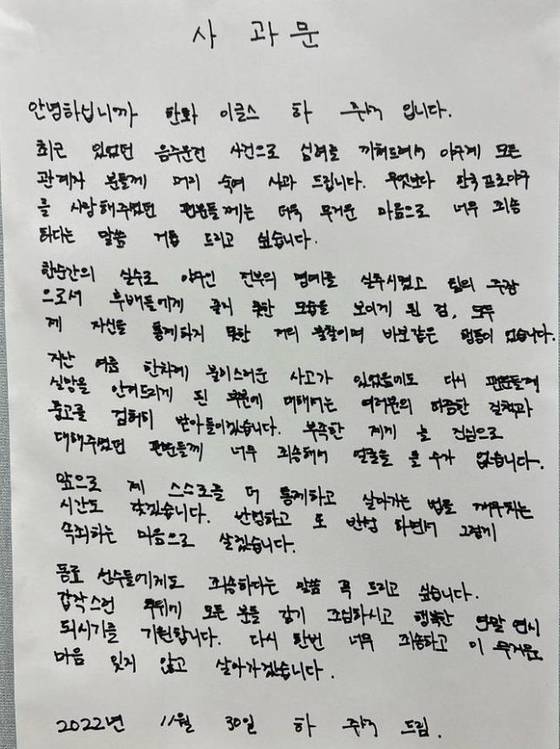 사 과 문
안녕하십니까 한화 이글스 하 주석 입니다.
최근 있었던 음주운전 사건으로 심려를 끼쳐드려서 야구계 모든
관계자 분들께 머리 숙여 사과 드립니다. 무엇보다 한국프로야구
를 사랑해주셨던 팬분들께는 더욱 무거운 마음으로 너무 죄송
하다는 말씀 거듭 드리고 싶습니다.
한순간의 실수로 야구인 전부의 명예를 실추시켰고 팀의 주장
으로서 후배들에게 곧지 못한 모습을 보이게 된 점, 모두
제 자신을 통제하지 못한 저의 불찰이며 바보같은 행동이 없습니다.
지난 여름 한차례 불미스러운 사고가 있었음에도 다시 팬분들께
실망을 안겨드리게 된 부분에 대해서는 여러분의 따끔한 질책과
충고를 겸허히 받아들이겠습니다. 부족한 제게 늘 진심으로
대해주셨던 팬분들께 너무 죄송해서 얼굴을 들 수가 없습니다.
앞으로 제 스스로를 더 통제하고 살아가는 법을 깨우치는
시간도 갖겠습니다. 반성하고 또 반성 하면서 그렇게
속죄하는 마음으로 살겠습니다.
동료 선수들에게도 죄송하다는 말씀 꼭 드리고 싶습니다.
갑작스런 추위에 모든 분들 감기 조심하시고 행복한 연말 연시
되시기를 기원합니다. 다시 한번 너무 죄송하고 이 무거운
마음 잊지 않고 살아가겠습니다.
2022년 11월 30일 하 주석 드림.